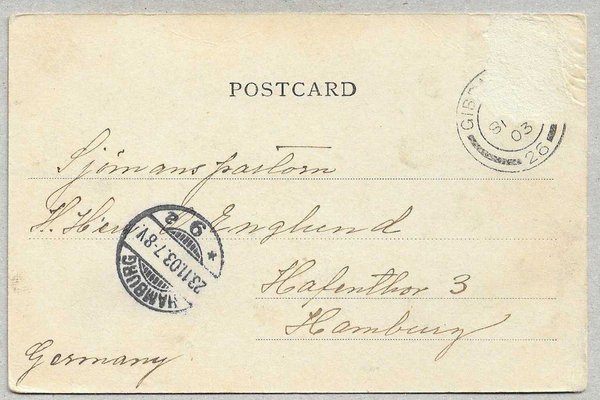 POSTCARD
GIB
03
26
Sjömanspastorn
H. Herr Englund
Hafenthor 3
Hamburg
Germany
HAMBURG
23.11.03.7-8V.
* 9 2